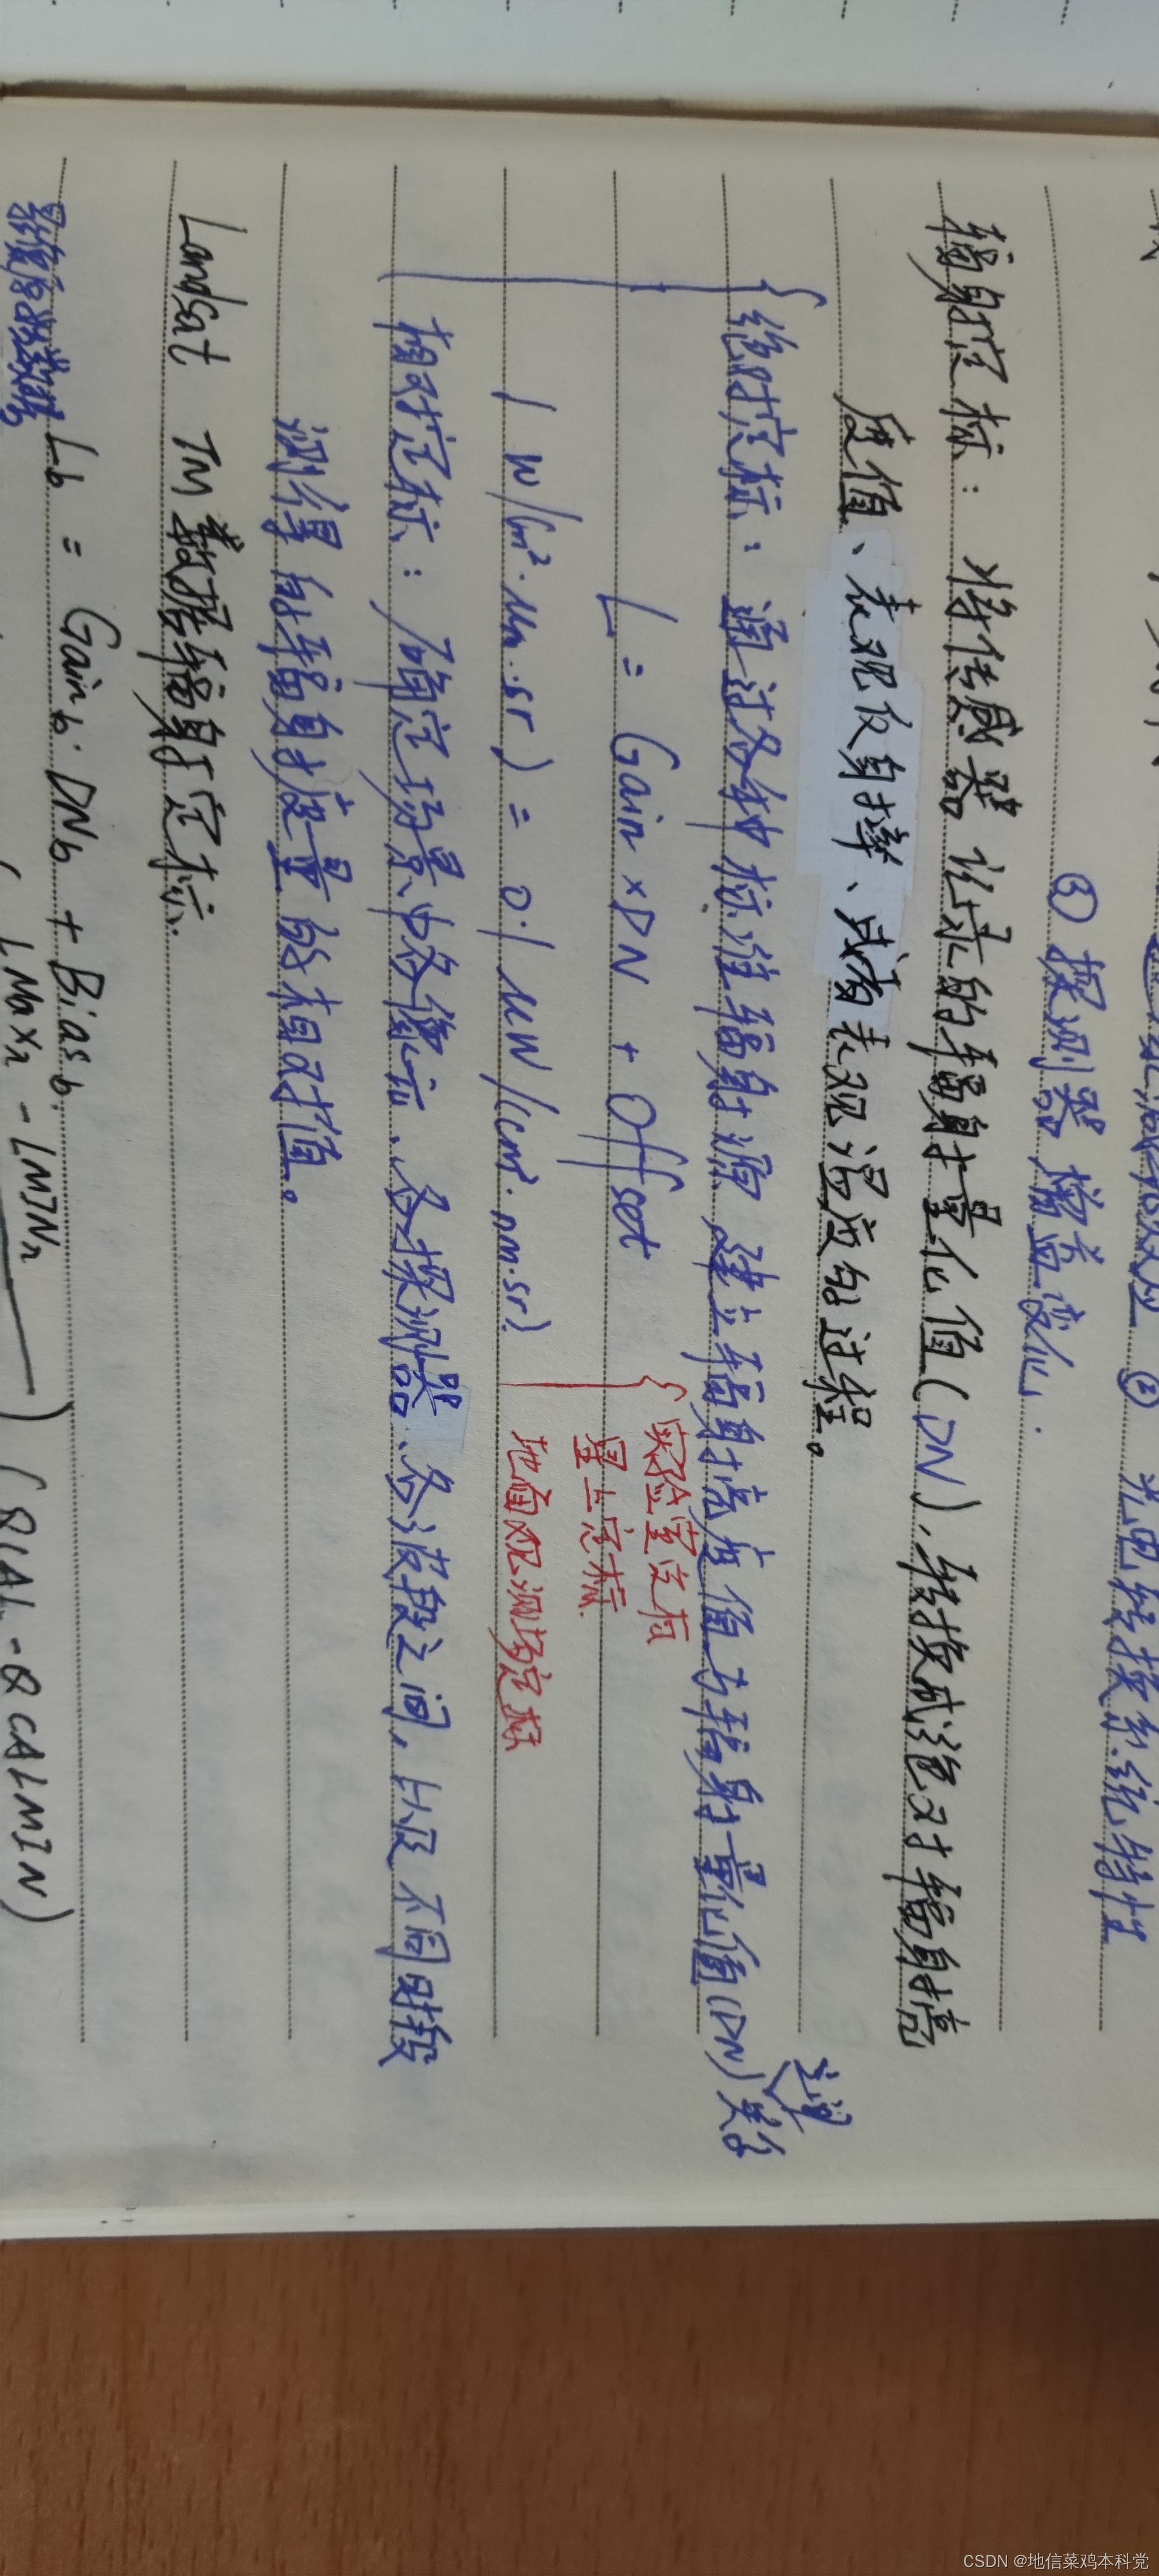 ② 光电转换系统特性
③ 探测器增益变化.
辐射定标：将传感器记录的辐射量化值(DN)、转换成绝对辐射亮
度值、表观反射率、或者表观温度的过程。
绝对定标：通过各种标准辐射源 建立辐射亮度值与辐射量化值(DN)关系
之间
L = Gain × DN + Offset
1 W/(m²·μm·sr) = 0.1 μW/(cm²·nm·sr)
实验室定标
星上定标.
地面观测场定标
相对定标：确定场景中各像元、各探测器、各波段之间，以及不同时段
测得的辐射度量的相对值。
Landsat TM 数据辐射定标.
Lb = Gain b· DNb + Bias b.
LMaxλ - LMINλ ) (QCAL - QCALMIN)
CSDN @地信菜鸡本科党